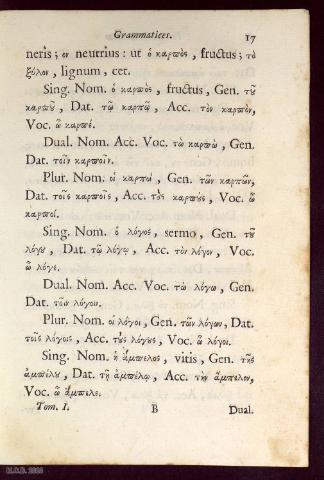 Grammatices. 17
neris; ον neutrius: ut ὁ καρπὸς, fructus; τὸ
ξύλον, lignum, cet.
Sing. Nom. ὁ καρπὸς, fructus, Gen. τȣ͂
καρπȣ͂, Dat. τῷ καρπῷ, Acc. τὸν καρπὸν,
Voc. ὦ καρπέ.
Dual. Nom. Acc. Voc. τὼ καρπὼ, Gen.
Dat. τοῖν καρποῖν.
Plur. Nom. οἱ καρποὶ, Gen. τῶν καρπῶν,
Dat. τοῖς καρποῖς, Acc. τȣ̀ς καρπȣ̀ς, Voc. ὦ
καρποί.
Sing. Nom. ὁ λόγος, sermo, Gen. τȣ͂
λόγȣ, Dat. τῷ λόγῳ, Acc. τὸν λόγον, Voc.
ὦ λόγε.
Dual. Nom. Acc. Voc. τὼ λόγω, Gen.
Dat. τοῖν λόγοιν.
Plur. Nom. οἱ λόγοι, Gen. τῶν λόγων, Dat.
τοῖς λόγοις, Acc. τȣ̀ς λόγȣς, Voc. ὦ λόγοι.
Sing. Nom. ἡ ἄμπελος, vitis, Gen. τῆς
ἀμπέλȣ, Dat. τῇ ἀμπέλῳ, Acc. τὴν ἄμπελον,
Voc. ὦ ἄμπελε.
Tom. I. B Dual.